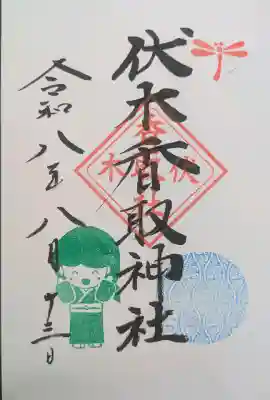 伏木香取神社
伏木
令和八年八月十三日